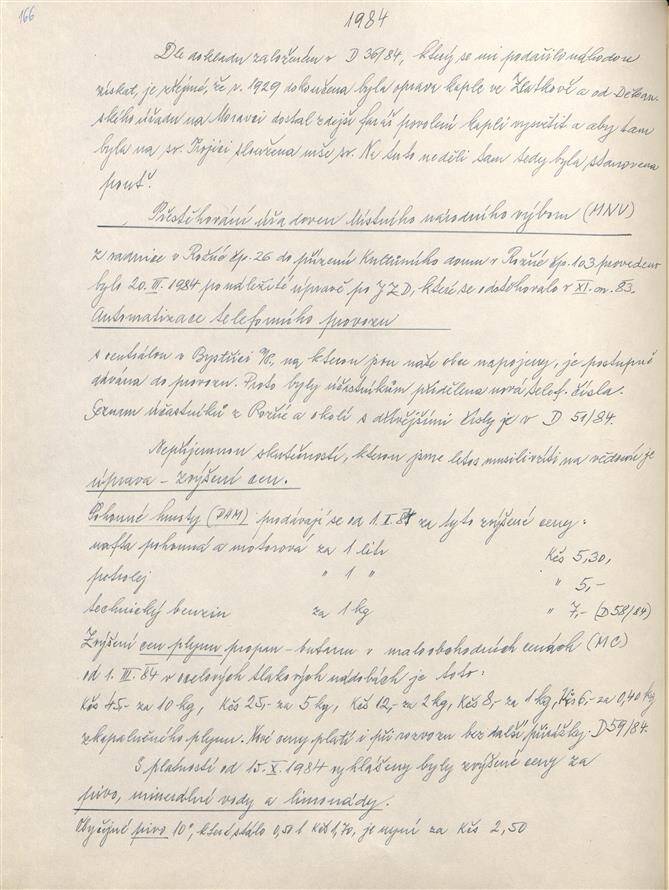 166
1984
Dle dokladu založeného v D 36/84, který se mi podařilo náhodou
získat, je zřejmé, že v r. 1929 dokončena byla oprava kaple ve Zlatkově a od Děkan-
ského úřadu na Moravci dostal zdejší farář povolení kapli vysvětit a aby tam
byla na sv. Trojici sloužena mše sv. Na tuto neděli tam tedy byla stanovena
pouť.
Přestěhování úřadoven Místního národního výboru (MNV)
z radnice v Rožné čp. 26 do přízemí Kulturního domu v Rožné čp. 103 provedeno
bylo 20. III. 1984 po náležité úpravě po JZD, které se odstěhovalo v XI. m. 83.
Automatizace telefonního provozu
s centrálou v Bystřici n/P., na kterou jsou naše obce napojeny, je postupně
dávána do provozu. Proto byly účastníkům přidělena nová telef. čísla.
Seznam účastníků z Rožné a okolí s dřívějšími čísly je v D 51/84.
Nepříjemnou skutečností, kterou jsme letos musili vzíti na vědomí je
úprava – zvýšení cen.
Pohonné hmoty (PHM) podávají se od 1. I. 84 za tyto zvýšené ceny:
nafta pohonná a motorová za 1 litr Kčs 5,30,
petrolej " 1 " " 5,-
technický benzin za 1 kg " 7,- (D 58/84)
Zvýšení cen plynu propan-butanu v maloobchodních cenách (MC)
od 1. III. 84 v ocelových tlakových nádobách je toto:
Kčs 45,- za 10 kg, Kčs 25,- za 5 kg, Kčs 12,- za 2 kg, Kčs 8,- za 1 kg, Kčs 6,- za 0,40 kg
zkapalněného plynu. Nové ceny platí i při rozvozu bez další přirážky. D 59/84.
S platností od 15. X. 1984 vyhlášeny byly zvýšené ceny za
pivo, minerální vody a limonády.
Obyčejné pivo 10°, které stálo 0,50 l Kčs 1,70, je nyní za Kčs 2,50